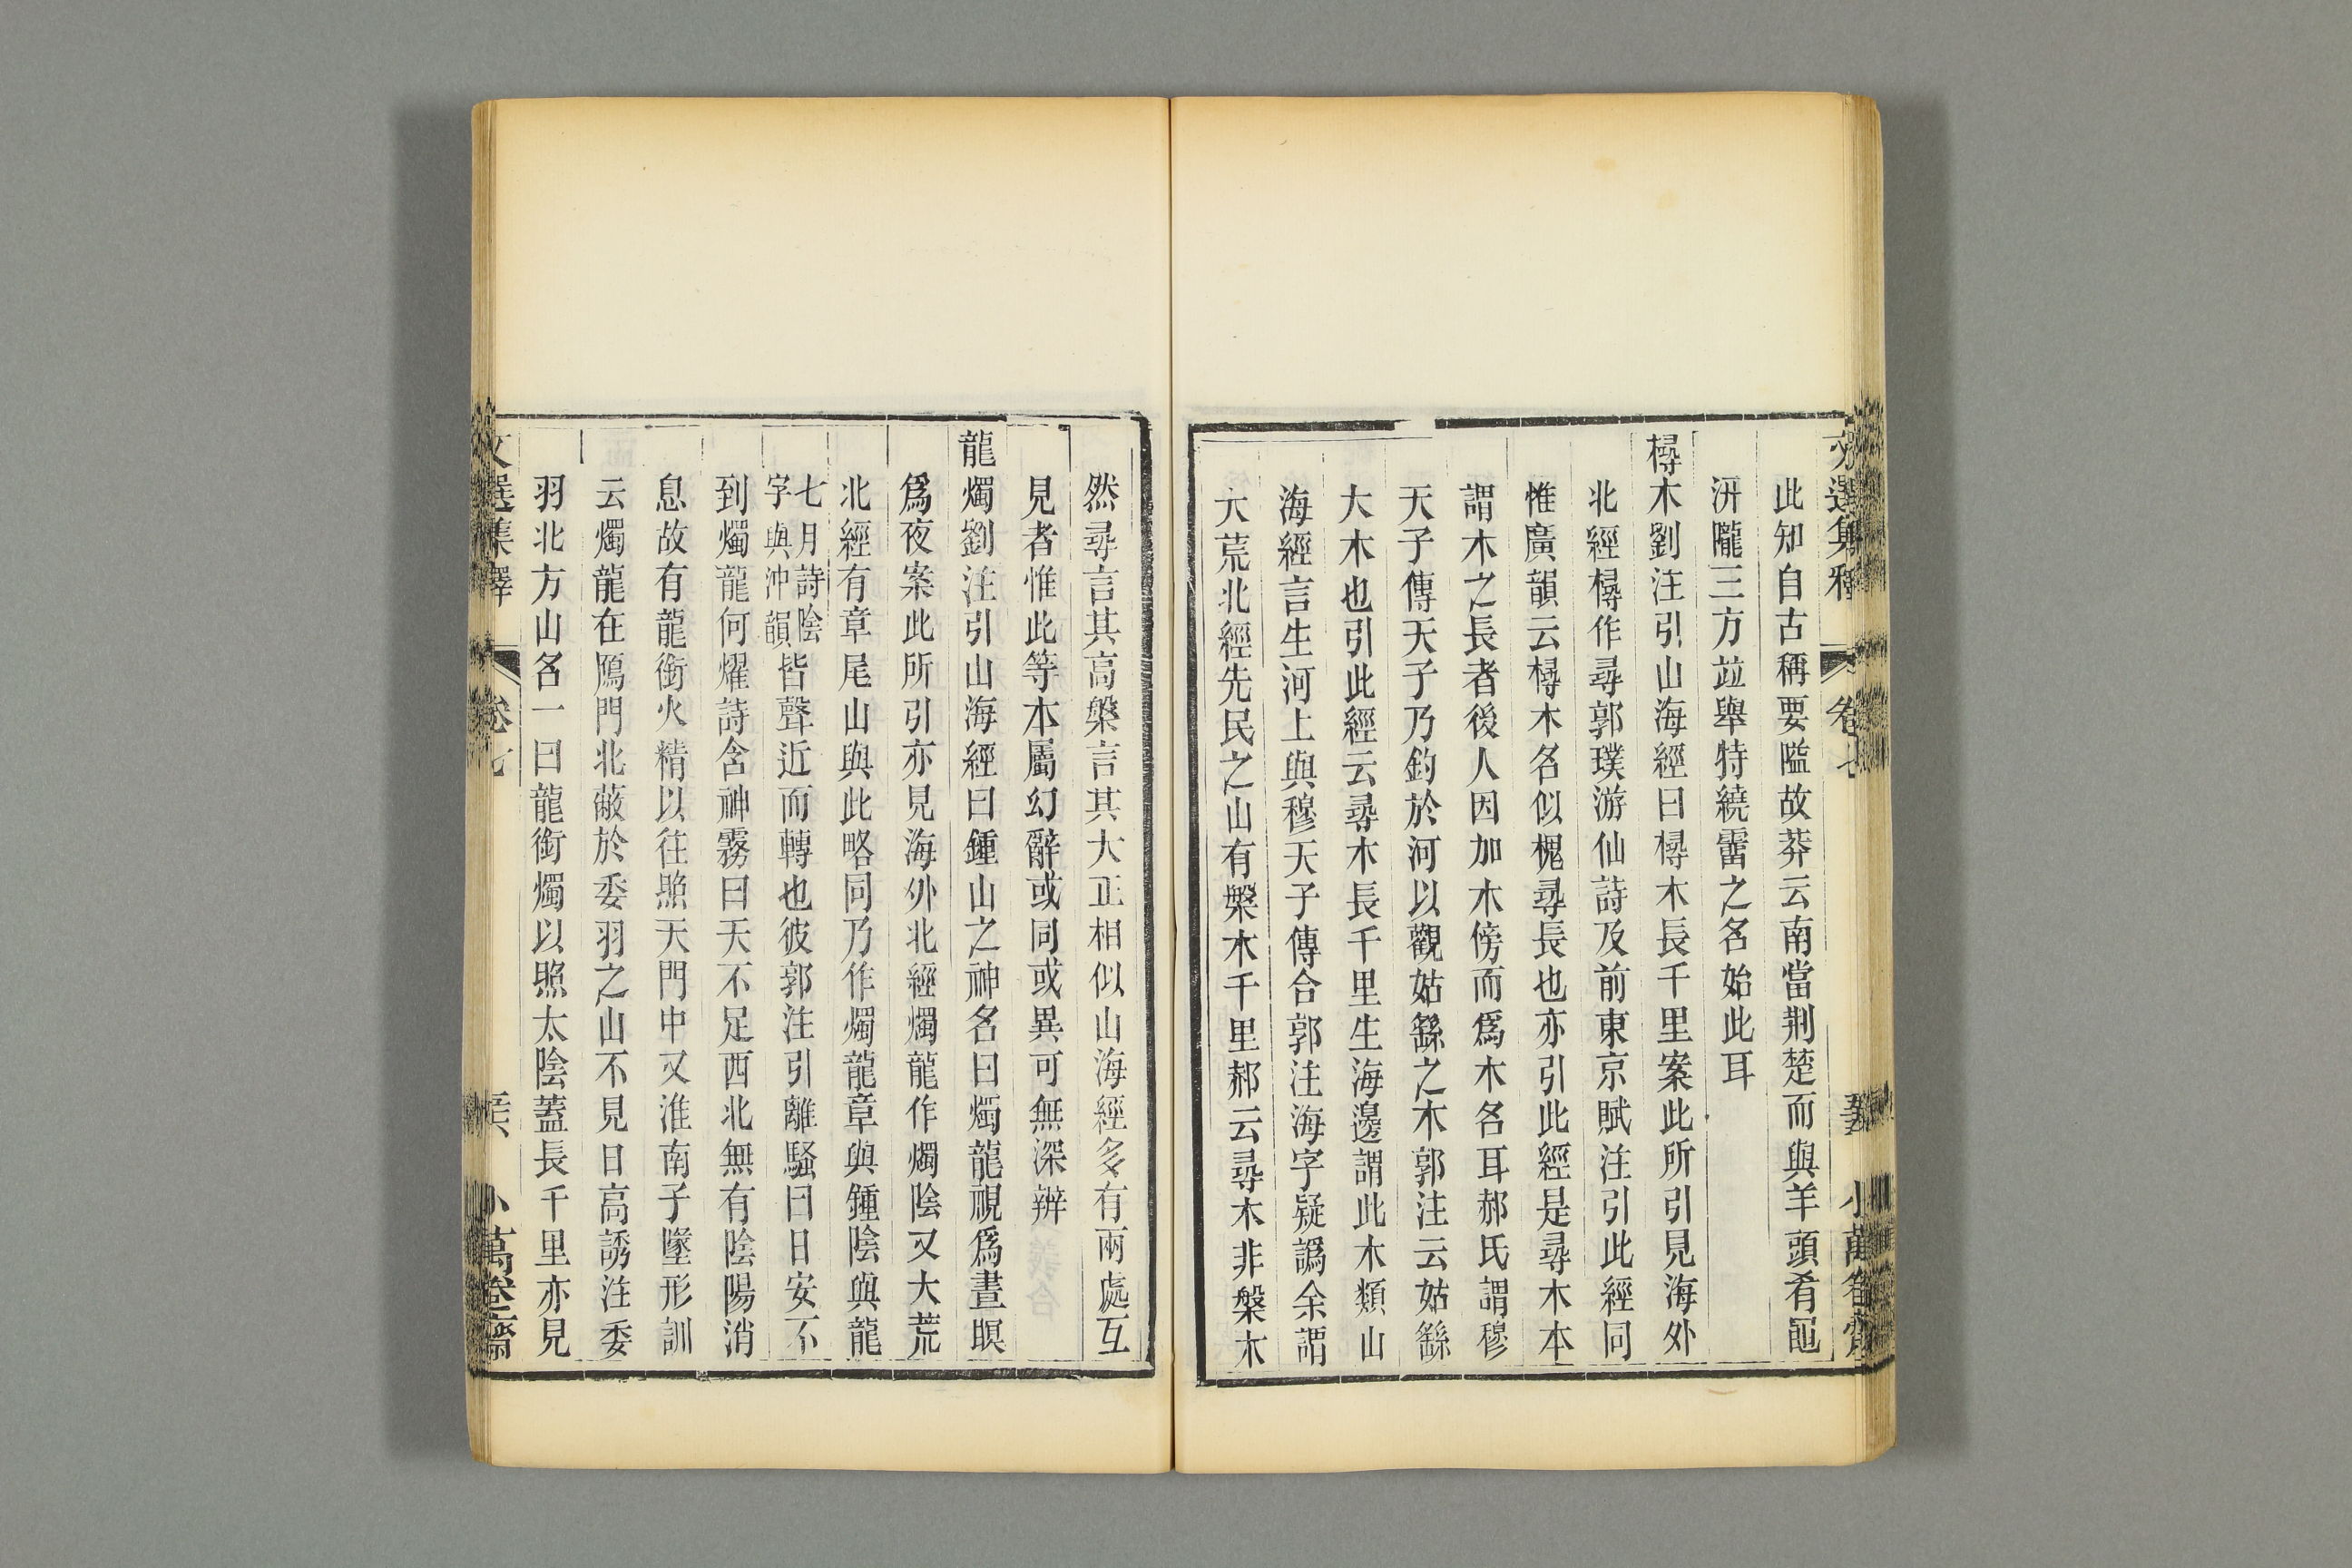 文選集釋 卷七 小萬卷齋
此知自古稱要隘故莽云南當荆楚而與羊頭肴黽
汧隴三方竝舉特繞霤之名始此耳
樳木劉注引山海經曰樳木長千里案此所引見海外
北經樳作尋郭璞游仙詩及前東京賦注引此經同
惟廣韻云樳木名似槐尋長也亦引此經是尋木本
謂木之長者後人因加木傍而爲木名耳郝氏謂穆
天子傳天子乃釣於河以觀姑繇之木郭注云姑繇
大木也引此經云尋木長千里生海邊謂此木類山
海經言生河上與穆天子傳合郭注海字疑譌余謂
大荒北經先民之山有槃木千里郝云尋木非槃木
然尋言其高槃言其大正相似山海經多有兩處互
見者惟此等本屬幻辭或同或異可無深辨
龍燭劉注引山海經曰鍾山之神名曰燭龍視爲晝瞑
爲夜案此所引亦見海外北經燭龍作燭陰又大荒
北經有章尾山與此略同乃作燭龍章與鍾陰與龍
七月詩陰
字與沖韻
皆聲近而轉也彼郭注引離騷曰日安不
到燭龍何燿詩含神霧曰天不足西北無有陰陽消
息故有龍銜火精以往照天門中又淮南子墬形訓
云燭龍在鴈門北蔽於委羽之山不見日高誘注委
羽北方山名一曰龍銜燭以照太陰蓋長千里亦見
文選集釋 卷七 小萬卷齋